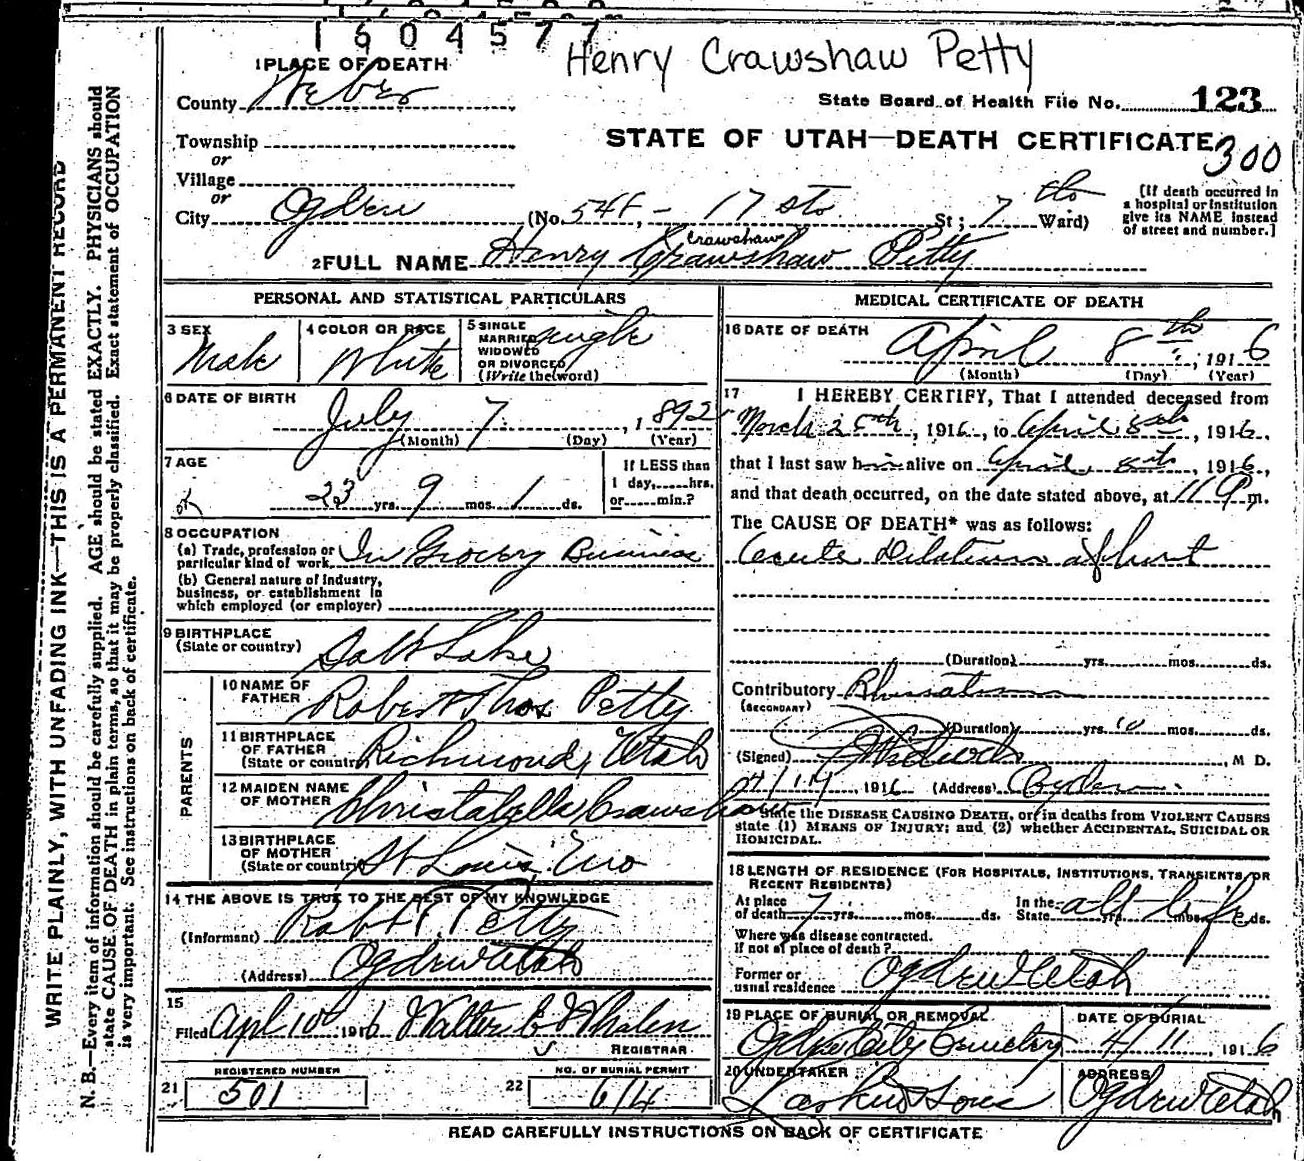 1604577
Henry Crawshaw Petty
1 PLACE OF DEATH
County Weber
State Board of Health File No. 123
Township
STATE OF UTAH—DEATH CERTIFICATE
300
or
Village
or
City Ogden (No. 544, - 17 St; 7th Ward)
[If death occurred in a hospital or institution give its NAME instead of street and number.]
Crawshaw
2 FULL NAME Henry Crawshaw Petty
PERSONAL AND STATISTICAL PARTICULARS
3 SEX Male
4 COLOR OR RACE White
5 SINGLE MARRIED WIDOWED OR DIVORCED (Write the word) Single
6 DATE OF BIRTH July 7, 1892
(Month) (Day) (Year)
7 AGE 23 yrs. 9 mos. 1 ds.
If LESS than 1 day, hrs. or min.?
8 OCCUPATION
(a) Trade, profession or particular kind of work In Grocery Business
(b) General nature of industry, business, or establishment in which employed (or employer)
9 BIRTHPLACE (State or country) Salt Lake
PARENTS
10 NAME OF FATHER Robert Thos Petty
11 BIRTHPLACE OF FATHER (State or country) Richmond, Utah
12 MAIDEN NAME OF MOTHER Christabella Crawshaw
13 BIRTHPLACE OF MOTHER (State or country) St Louis,
14 THE ABOVE IS TRUE TO THE BEST OF MY KNOWLEDGE
(Informant) Robt T. Petty
(Address) Ogden Utah
15
Filed Apl 10th 1916 Walter E Whalen
REGISTRAR
REGISTERED NUMBER
21 501
NO. OF BURIAL PERMIT
22 614
MEDICAL CERTIFICATE OF DEATH
16 DATE OF DEATH April 8th, 1916
(Month) (Day) (Year)
17 I HEREBY CERTIFY, That I attended deceased from
March 25th, 1916, to April 8th, 1916,
that I last saw him alive on April 8th, 1916,
and that death occurred, on the date stated above, at 11 P m.
The CAUSE OF DEATH* was as follows:
Acute Dilatation of heart
(Duration) yrs. mos. ds.
Contributory Rheumatism
(SECONDARY)
(Duration) yrs. 10 mos. ds.
(Signed) , M D.
4/14, 1916 (Address) Ogden
*State the DISEASE CAUSING DEATH, or in deaths from VIOLENT CAUSES
state (1) MEANS OF INJURY; and (2) whether ACCIDENTAL, SUICIDAL OR
HOMICIDAL.
18 LENGTH OF RESIDENCE (FOR HOSPITALS, INSTITUTIONS, TRANSIENTS, OR
RECENT RESIDENTS)
At place of death 7 yrs. mos. ds. In the State all life yrs. mos. ds.
Where was disease contracted.
If not at place of death?
Former or usual residence Ogden Utah
19 PLACE OF BURIAL OR REMOVAL Ogden City Cemetery
DATE OF BURIAL 4/11, 1916
20 UNDERTAKER Larkin & Sons
ADDRESS Ogden Utah
READ CAREFULLY INSTRUCTIONS ON BACK OF CERTIFICATE
WRITE PLAINLY, WITH UNFADING INK—THIS IS A PERMANENT RECORD
N. B.—Every item of information should be carefully supplied. AGE should be stated EXACTLY. PHYSICIANS should
state CAUSE OF DEATH in plain terms, so that it may be properly classified. Exact statement of OCCUPATION
is very important. See instructions on back of certificate.